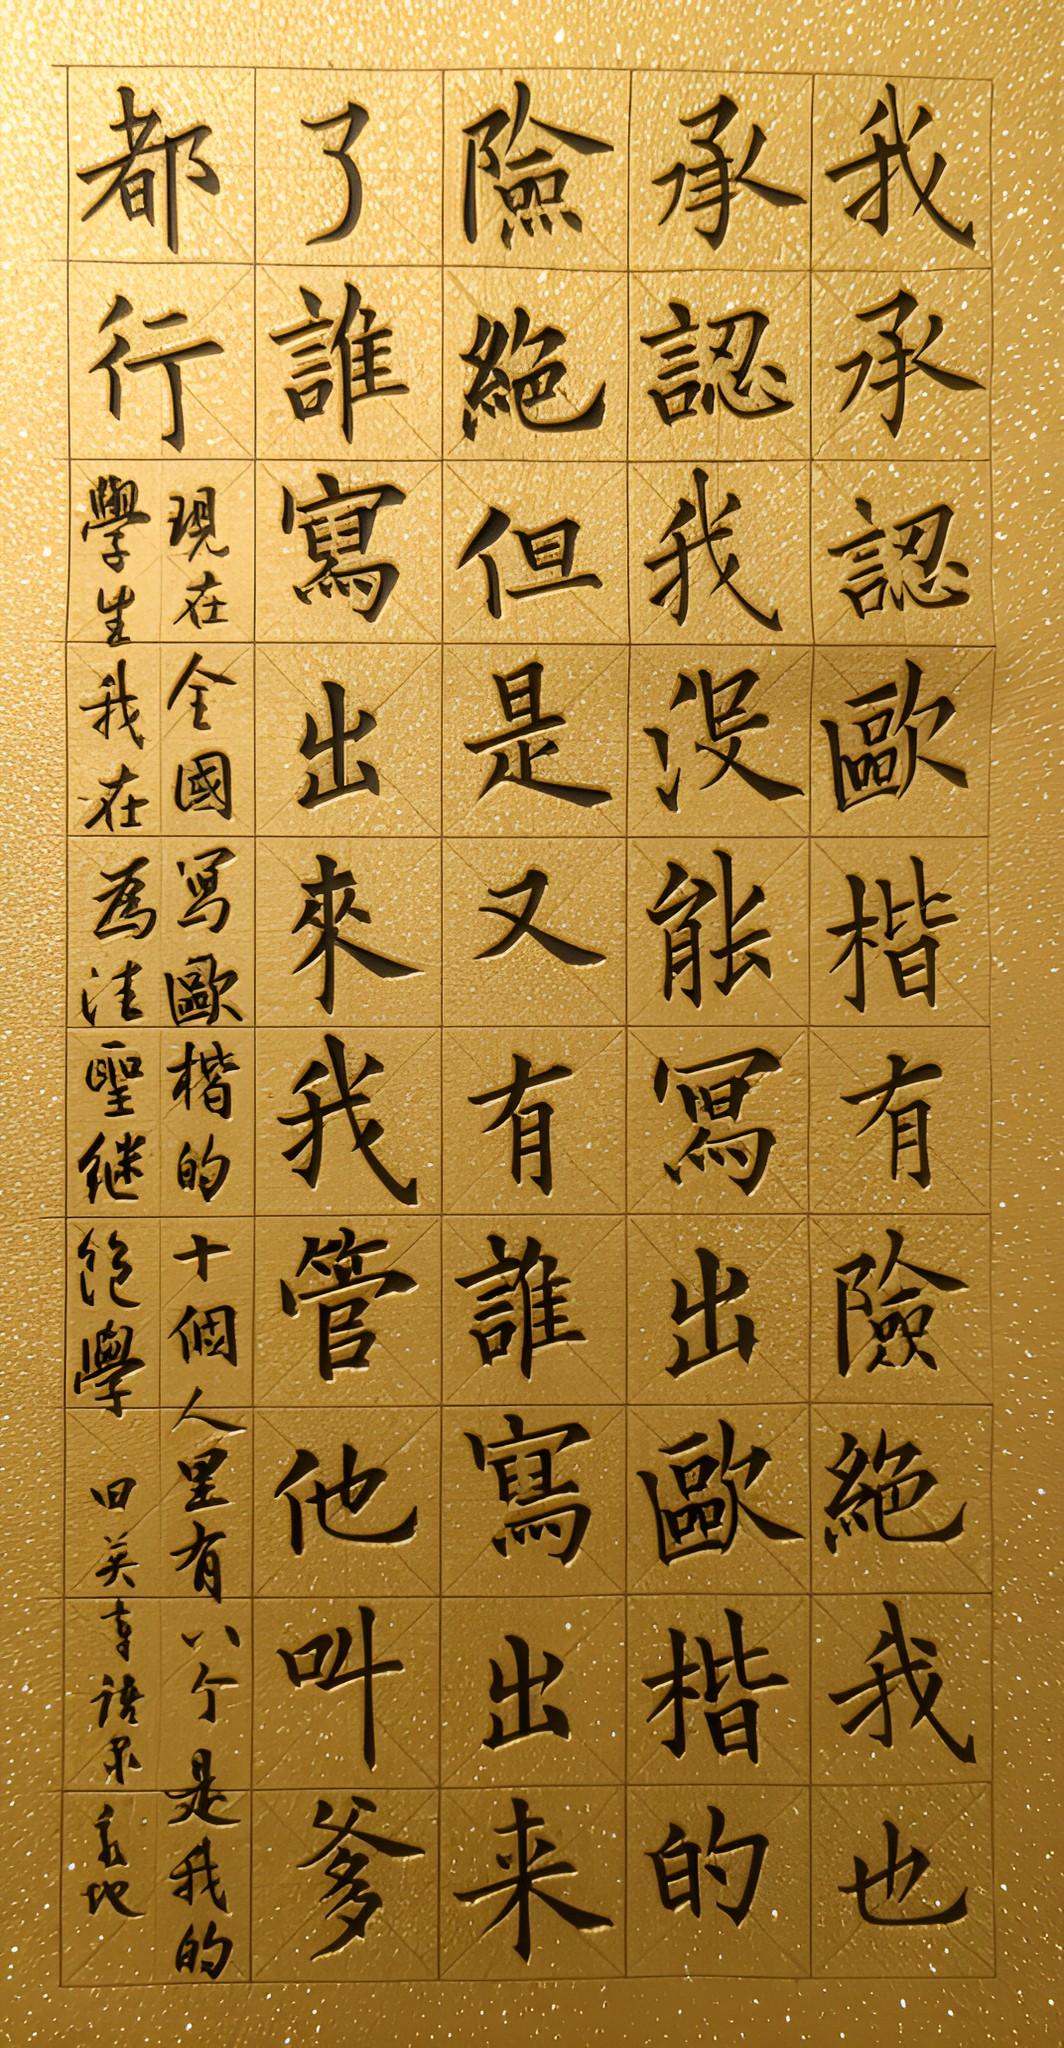 我承認歐楷有險絕我也
承認我沒能冩出歐楷的
險絕但是又有誰寫出来
了誰寫出來我管他叫爹
都行
現在全國冩歐楷的十個人里有八个是我的
學生我在為往聖继絕學
田英章語录